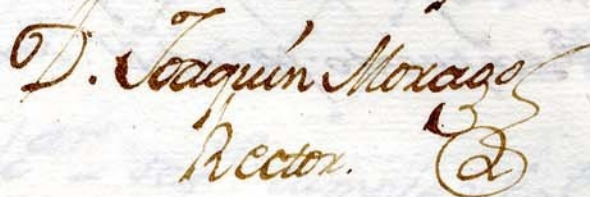 D. Joaquín Moxago
Rector.